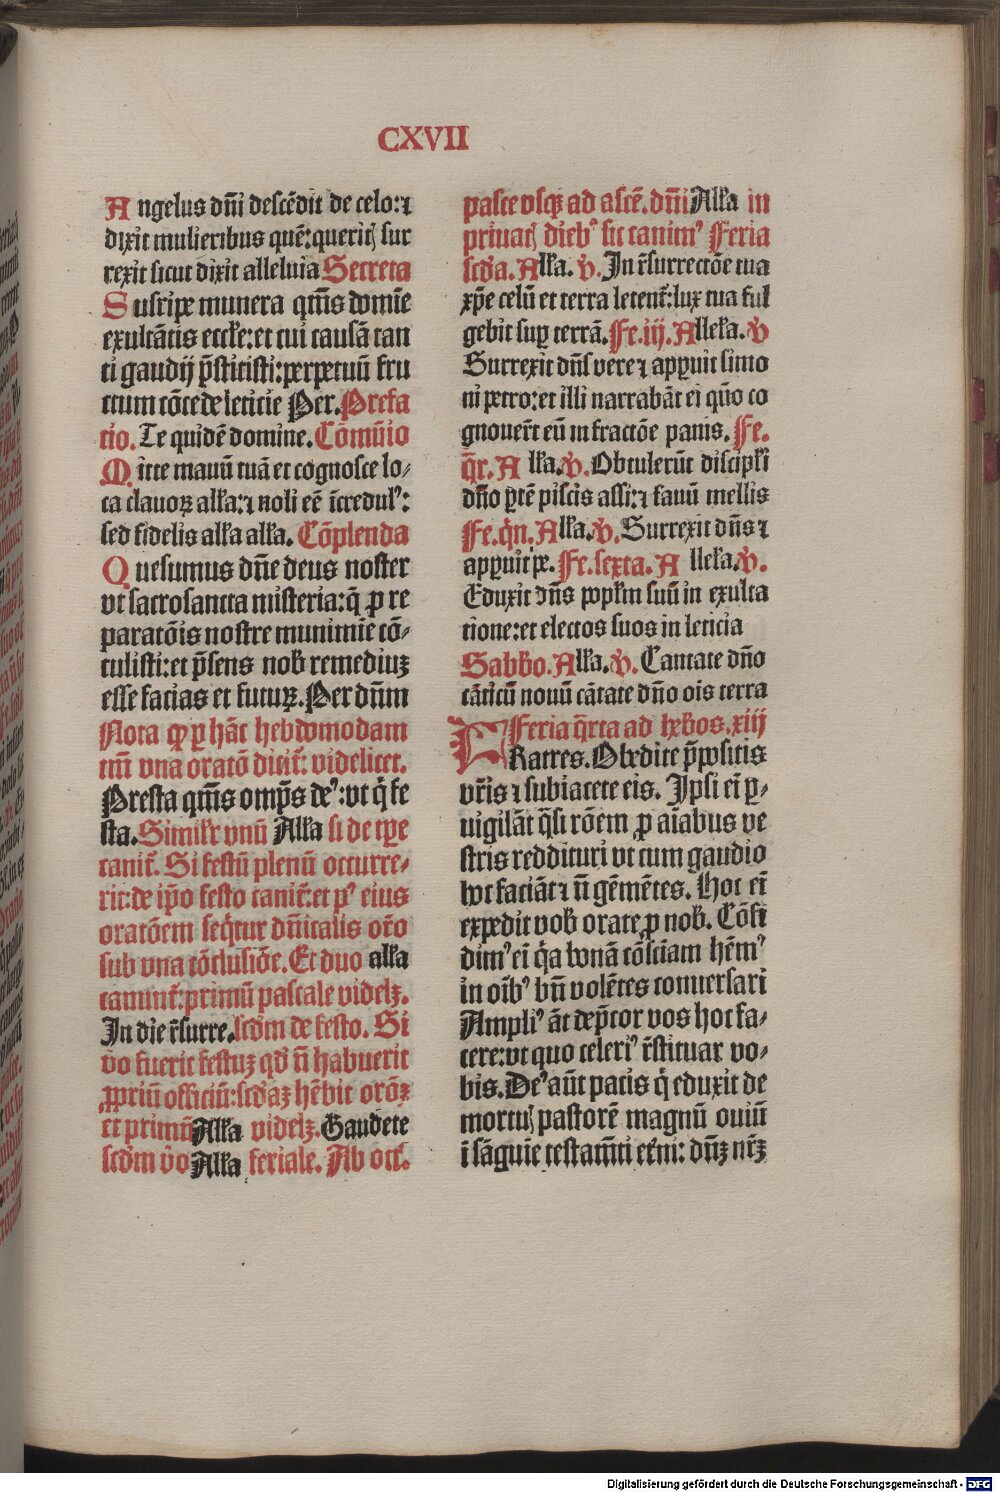 CXVII
Angelus dn̄i descēdit de celo:⁊
dixit mulieribus quē:queritꝭ sur
rexit sicut dixit alleluia Secreta
Suscipe munera qm̄s domīe
exultātis eccłe:et cui causā tan
ti gaudij p̄stitisti:perpetuū fru
ctum cōcede leticie Per. Prefa
tio. Te quidē domine. Cōmūio
Mitte manū tuā et cognosce lo⸗
ca clauoꝝ ałła:⁊ noli eē īcredulꝰ:
sed fidelis ałła ałła. Cōplenda
Quesumus dn̄e deus noster
vt sacrosancta misteria:q̄ ꝓ re
paratōis nostre munimīe cō⸗
tulisti:et p̄sens nob remediuꝫ
esse facias et futurꝫ. Per dn̄m
Nota ꝙ ꝑ hāc hebdomodam
tm̄ vna oratō dicit̄: videlicet.
Presta qm̄s omp̄s deꝰ:vt q̇ fe
sta. Similr vnū Ałła si de tꝑe
canit̄. Si festū plenū occurre⸗
rit:de ip̄o festo canit̄:et pꝰ eius
oratōem seq̄tur dn̄icalis or̄o
sub vna cōclusiōe. Et duo ałła
canunt̄:primū pascale videlꝫ.
In die r̄surre. scd̄m de festo. Si
v̊o fuerit festuꝫ qd̄ n̄ habuerit
ꝓpriū officiū:scd̄aꝫ hēbit orōꝫ
et primū Ałła videlꝫ. Gaudete
scd̄m v̊o Ałła feriale. Ab oct̄.
pasce vsqꝫ ad ascē. dn̄i Ałła in
priuatꝭ diebꝰ sic canimꝰ Feria
scd̄a. Ałła. v̊. In r̄surrectōe tua
xp̄e celū et terra letent̄:lux tua ful
gebit suꝑ terrā. Fe.iij. Alleła. v̊
Surrexit dn̄s vere ⁊ apꝑuit simo
ni petro:et illi narrabāt ei qūo co
gnouer̄t eū in fractōe panis. Fe.
q̄r. Ałła. v̊. Obtulerūt discipłi
dn̄o ꝑtē piscis assi:⁊ fauū mellis
Fe.q̄n. Ałła. v̊. Surrexit dn̄s ⁊
apꝑuit pe. Fe.sexta. Alleła. v̊.
Eduxit dn̄s popłm suū in exulta
tione:et electos suos in leticia
Sabbo. Ałła. v̊. Cantate dn̄o
cāticū nouū cātate dn̄o oīs terra
Feria q̄rta ad hebos. xiij
FRatres. Obedite p̄positis
vr̄is ⁊ subiacete eis. Ipsi ei̅ ꝑ⸗
uigilāt q̄si rōem ꝓ aīabus ve
stris reddituri vt cum gaudio
hoc faciāt ⁊ n̄ gēmētes. Hoc ei̅
expedit vob orate ꝓ nob. Cōfi
dimꝰ ei̅ q̇a bonā cōsciam hēmꝰ
in oībꝰ bn̄ volētes conuersari
Ampliꝰ āt dep̄cor vos hoc fa⸗
cere:vt quo celeriꝰ r̄stituar vo⸗
bis. Deꝰ aūt pacis q̇ eduxit de
mortuꝭ pastorē magnū ouiū
ī sāguīe testam̄ti et̄ni: dn̄ꝫ nr̄ꝫ
Digitalisierung gefördert durch die Deutsche Forschungsgemeinschaft - DFG